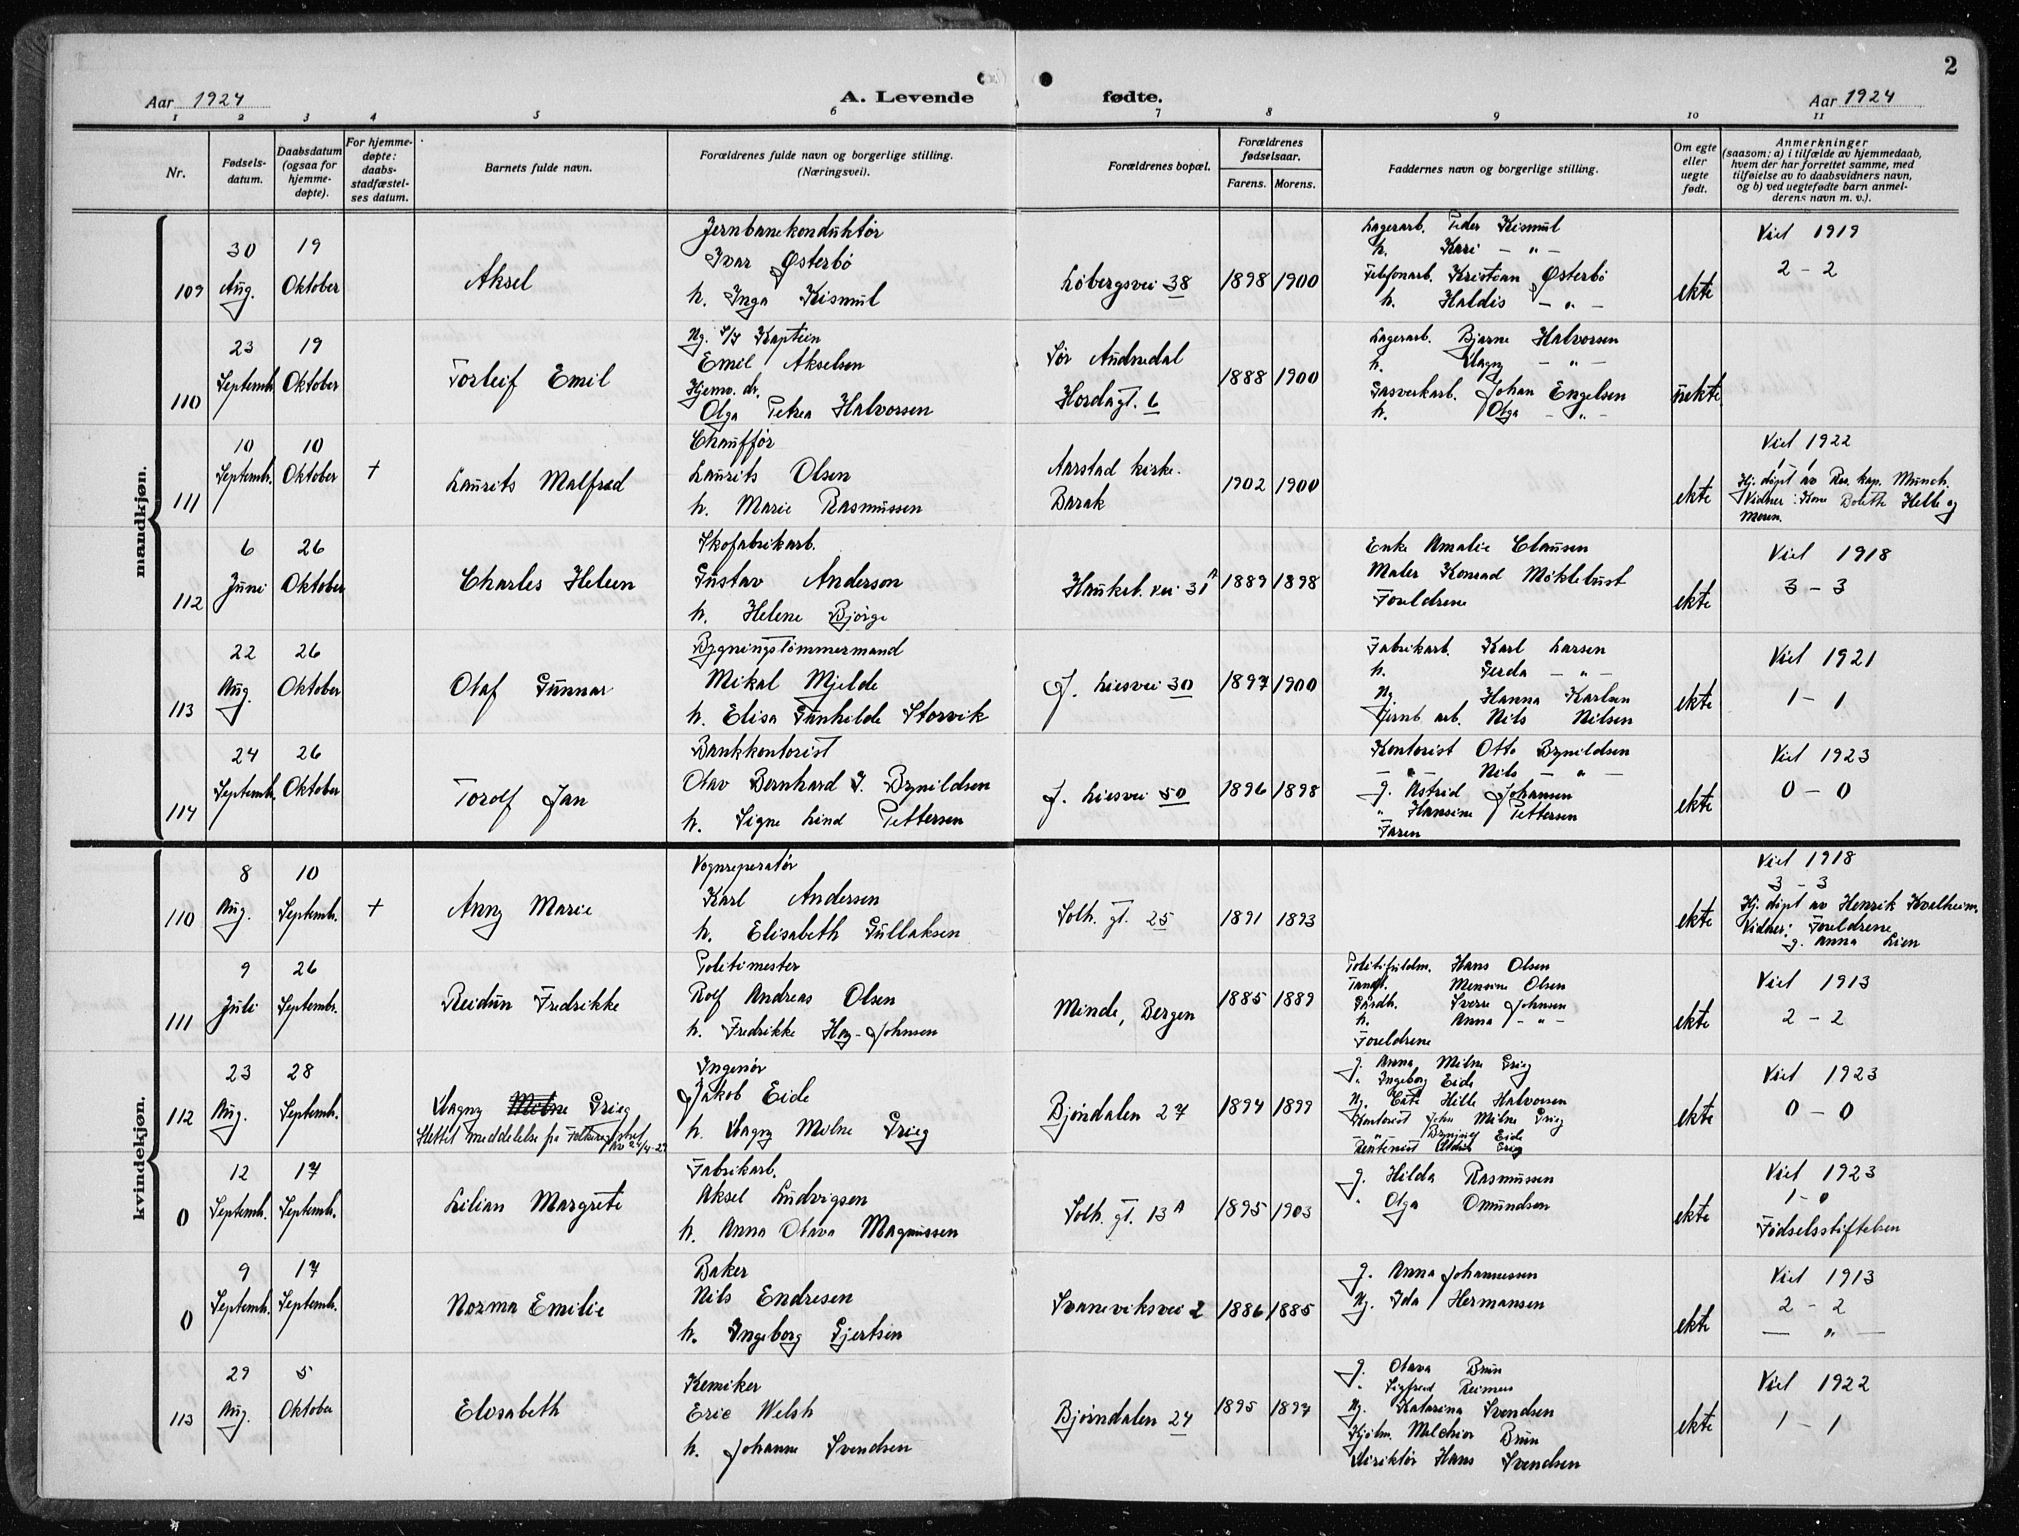 2
Aar 1924
A. Levende fødte.
Aar 1924
1 2 3 4 5 6 7 8 9 10 11
Nr.
Fødselsdatum.
Daabsdatum (ogsaa for hjemmedøpte).
For hjemmedøpte: daabsstadfæstelses datum.
Barnets fulde navn.
Forældrenes fulde navn og borgerlige stilling. (Næringsvei).
Forældrenes bopæl.
Forældrenes fødselsaar.
Farens. Morens.
Faddernes navn og borgerlige stilling.
Om egte eller uegte født.
Anmerkninger (saasom: a) i tilfælde av hjemmedaab, hvem der har forrettet samme, med tilføielse av to daabsvidners navn, og b) ved uegtefødte barn anmelderens navn m. v.).
mandkjøn.
109
30 Aug.
19 Oktober
Aksel
Jernbanekonduktør
Ivar Østerbø
h. Inga Kismul
Løbergsvei 38
1898 1900
Lagerarb. Peder Kismul
h. Kari — " —
Telefonarb. Kristian Østerbø
h. Haldis — " —
ekte
Viet 1919
2 - 2
110
23 Septemb.
19 Oktober
Torleif Emil
Ug. S/S Kaptein
Emil Akselsen
Hjemv. dr.
Olga Petrea Halvorsen
Sør Audnedal
Hordagt. 6
1888 1900
Lagerarb. Bjarne Halvorsen
h. Dagny — " —
Gasverkarb. Johan Engelsen
h. Olga — " —
uekte
111
10 Septemb.
10 Oktober
+
Laurits Malfred
Chauffør
Laurits Olsen
h. Marie Rasmussen
Aarstad kirke.
Barak
1902 1900
ekte
Viet 1922
1 1
Hj. døpt av Res. kap. Münch.
Vidner: Kone Boleth Helle og
Moren.
112
6 Juni
26 Oktober
Charles Heleen
Skofabrikarb.
Gustav Anderson
h. Helene Bjørge
Haukeb. vei 31 A
1889 1898
Enke Amalie Clausen
Maler Konrad Møklebust
Foreldrene
ekte
Viet 1918
3 - 3
113
22 Aug.
26 Oktober
Olaf Gunnar
Bygningstømmermand
Mikal Mjelde
h. Elisa Gunhilde Storvik
J. Liesvei 30
1897 1900
Fabrikarb. Karl Larsen
h. Gerda — " —
Ug. Hanna Karlsen
Jernb arb. Nils Nilsen
ekte
Viet 1921
1 - 1
114
24 Septemb.
26 Oktober
Torolf Jan
Bankkontorist
Olav Bernhard S. Brynildsen
h. Signe Lind Pettersen
J. Liesvei 50
1896 1898
Kontorist Otto Brynildsen
— " — Nils — " —
g. Astrid Johansen
" Hansine Pettersen
Faren
ekte
Viet 1923
0 - 0
kvindekjøn.
110
8 Aug.
10 Septemb.
+
Anny Marie
Vognreperatør
Karl Andersen
h. Elisabeth Gullaksen
Solh. gt. 25
1891 1893
ekte
Viet 1918
3 - 3
Hj. døpt av Henrik Kvalheim.
Vidner: Foreldrene
g. Anna Lien
111
9 Juli
26 Septemb.
Reidun Fredrikke
Politimester
Rolf Andreas Olsen
h. Fredrikke Høy-Johnsen
Minde, Bergen
1885 1889
Politifuldm. Hans Olsen
Mensine Olsen
Gaardb. Sverre Johnsen
h. Anna — " —
Foreldrene
ekte
Viet 1913
2 - 2
112
23 Aug.
28 Septemb.
Dagny Milne Grieg
Slettet meddelelse fra
Ingeniør
Jakob Eide
h. Dagny Milne Grieg
Bjørndalen 27
1894 1899
g. Anna Milne Grieg
" Ingeborg Eide
Ug. Cate Hille Halvorsen
Kontorist John Milne Grieg
Brynjulf Eide
ekte
Viet 1923
0 - 0
0
12 Septemb.
17 Septemb.
Lilian Margrete
Fabrikarb.
Aksel Ludvigsen
h. Anna Olava Magnussen
Solh. gt. 13 A
1895 1903
g. Hilda Rasmussen
" Olga Omundsen
ekte
Viet 1923
1 - 0
Fødselsstiftelsen
0
9 Septemb.
17 Septemb.
Norma Emilie
Baker
Nils Endresen
h. Ingeborg Gjertsen
Svaneviksvei 2
1886 1885
g. Anna Johannessen
Ug. Ida Hermansen
ekte
Viet 1913
2 - 2
— " —
113
29 Aug.
5 Oktober
Elisabeth
Kemiker
Eric Welsh
h. Johanne Svendsen
Bjørndalen 24
1895 1897
g. Olava Brun
" Sigfred Reimers
Ug. Katarina Svendsen
Melchior Brun
Direktør Hans Svendsen
ekte
Viet 1922
1 - 1